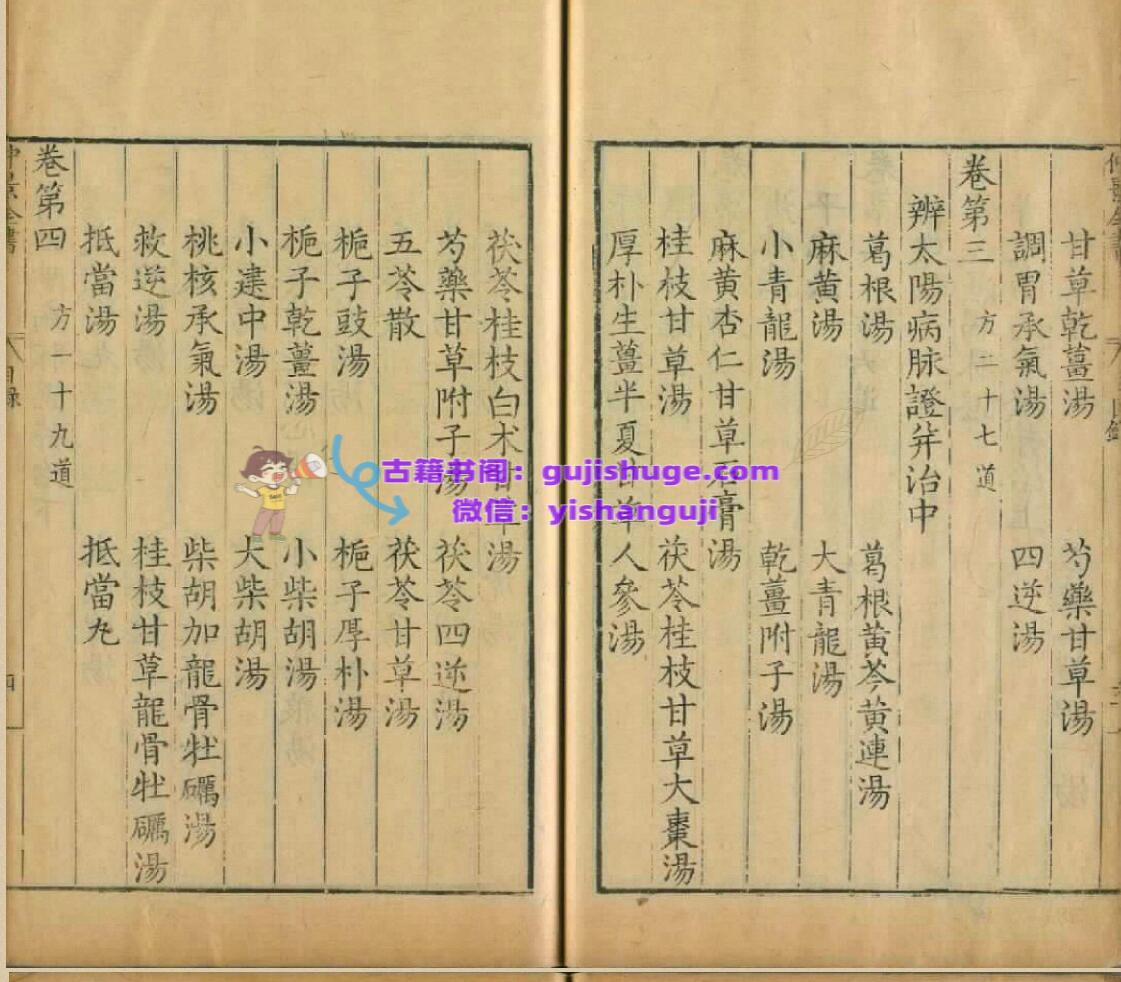 甘草乾薑湯 芍藥甘草湯
調胃承氣湯 四逆湯
卷第三 方二十七道
辨太陽病脉證并治中
葛根湯 葛根黃芩黃連湯
麻黃湯 大青龍湯
小青龍湯 乾薑附子湯
麻黃杏仁甘草石膏湯
桂枝甘草湯 茯苓桂枝甘草大棗湯
厚朴生薑半夏甘草人參湯
茯苓桂枝白术甘湯
芍藥甘草附子湯 茯苓四逆湯
五苓散 茯苓甘草湯
梔子豉湯 梔子厚朴湯
梔子乾薑湯 小柴胡湯
小建中湯 大柴胡湯
桃核承氣湯 柴胡加龍骨牡礪湯
救逆湯 桂枝甘草龍骨牡礪湯
抵當湯 抵當丸
卷第四 方一十九道
目錄
四
古籍书阁：gujishuge.com
微信：yishanguji